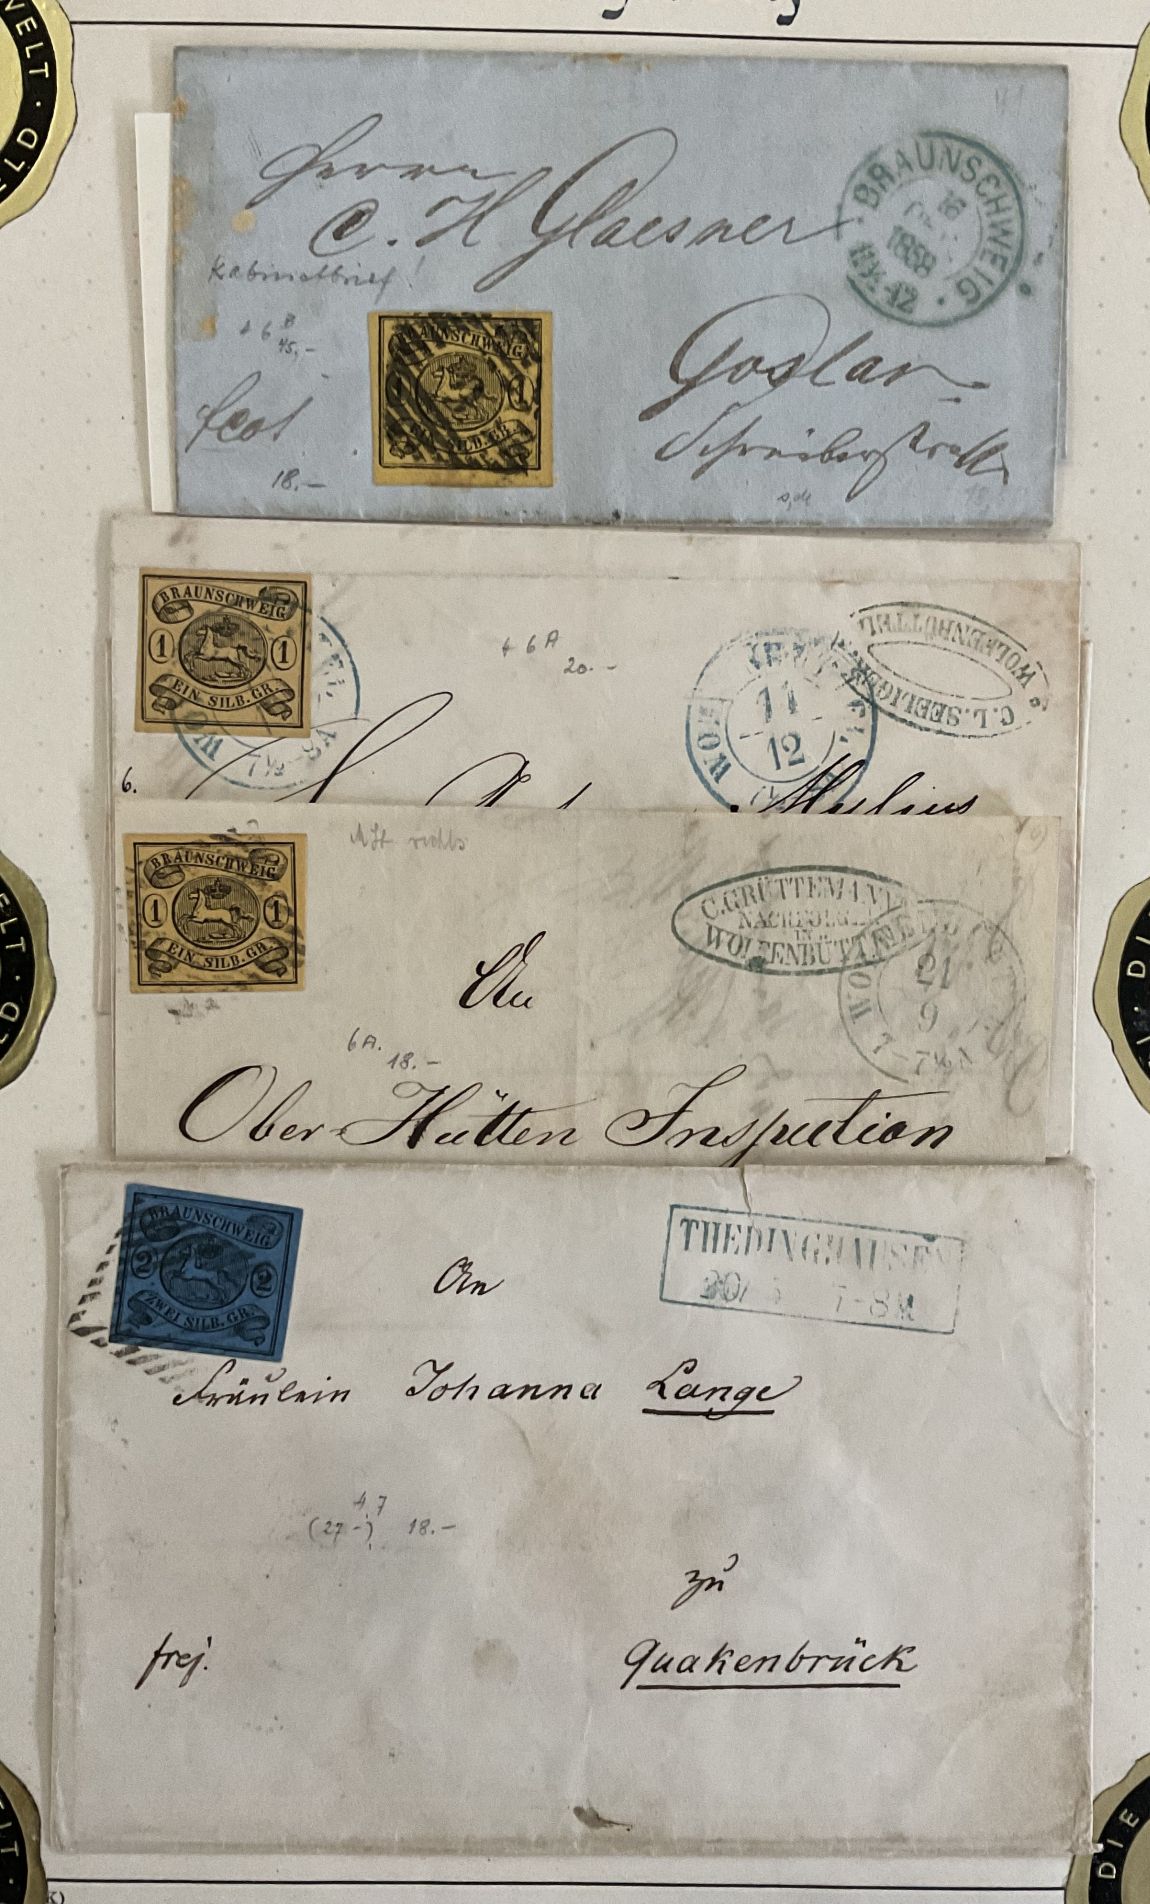 WELT ·
Herrn
C. H Glaesner
BRAUNSCHWEIG
16
1858
11½-12
Kabinettbrief!
6 B
45,-
BRAUNSCHWEIG
1 1
EIN SILB. GR.
Goslar
18.-
BRAUNSCHWEIG
1 1
EIN SILB. GR.
7½-8A
6A
20.-
WOLFENBÜTTEL
11
12
C. L. SEELIGER
WOLFENBÜTTEL
6.
Mylius
BRAUNSCHWEIG
1 1
EIN SILB. GR.
rechts
C. GRÜTTEMANN
NACHFOLGER
IN
WOLFENBÜTTEL
21
9
7-7½A
An
6A.
18.-
Ober-Hütten Inspection
BRAUNSCHWEIG
2 2
ZWEI SILB. GR.
THEDINGHAUSEN
20/5 7-8M
An
Fräulein Johanna Lange
7
(27-) 18.-
zu
frej.
Quakenbrück
DIE